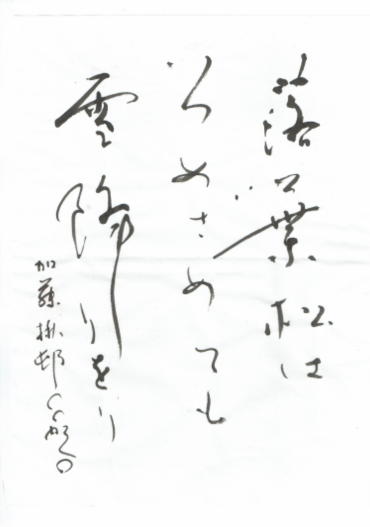 落葉松は
いつめざめても
雪降りをり
加藤楸邨